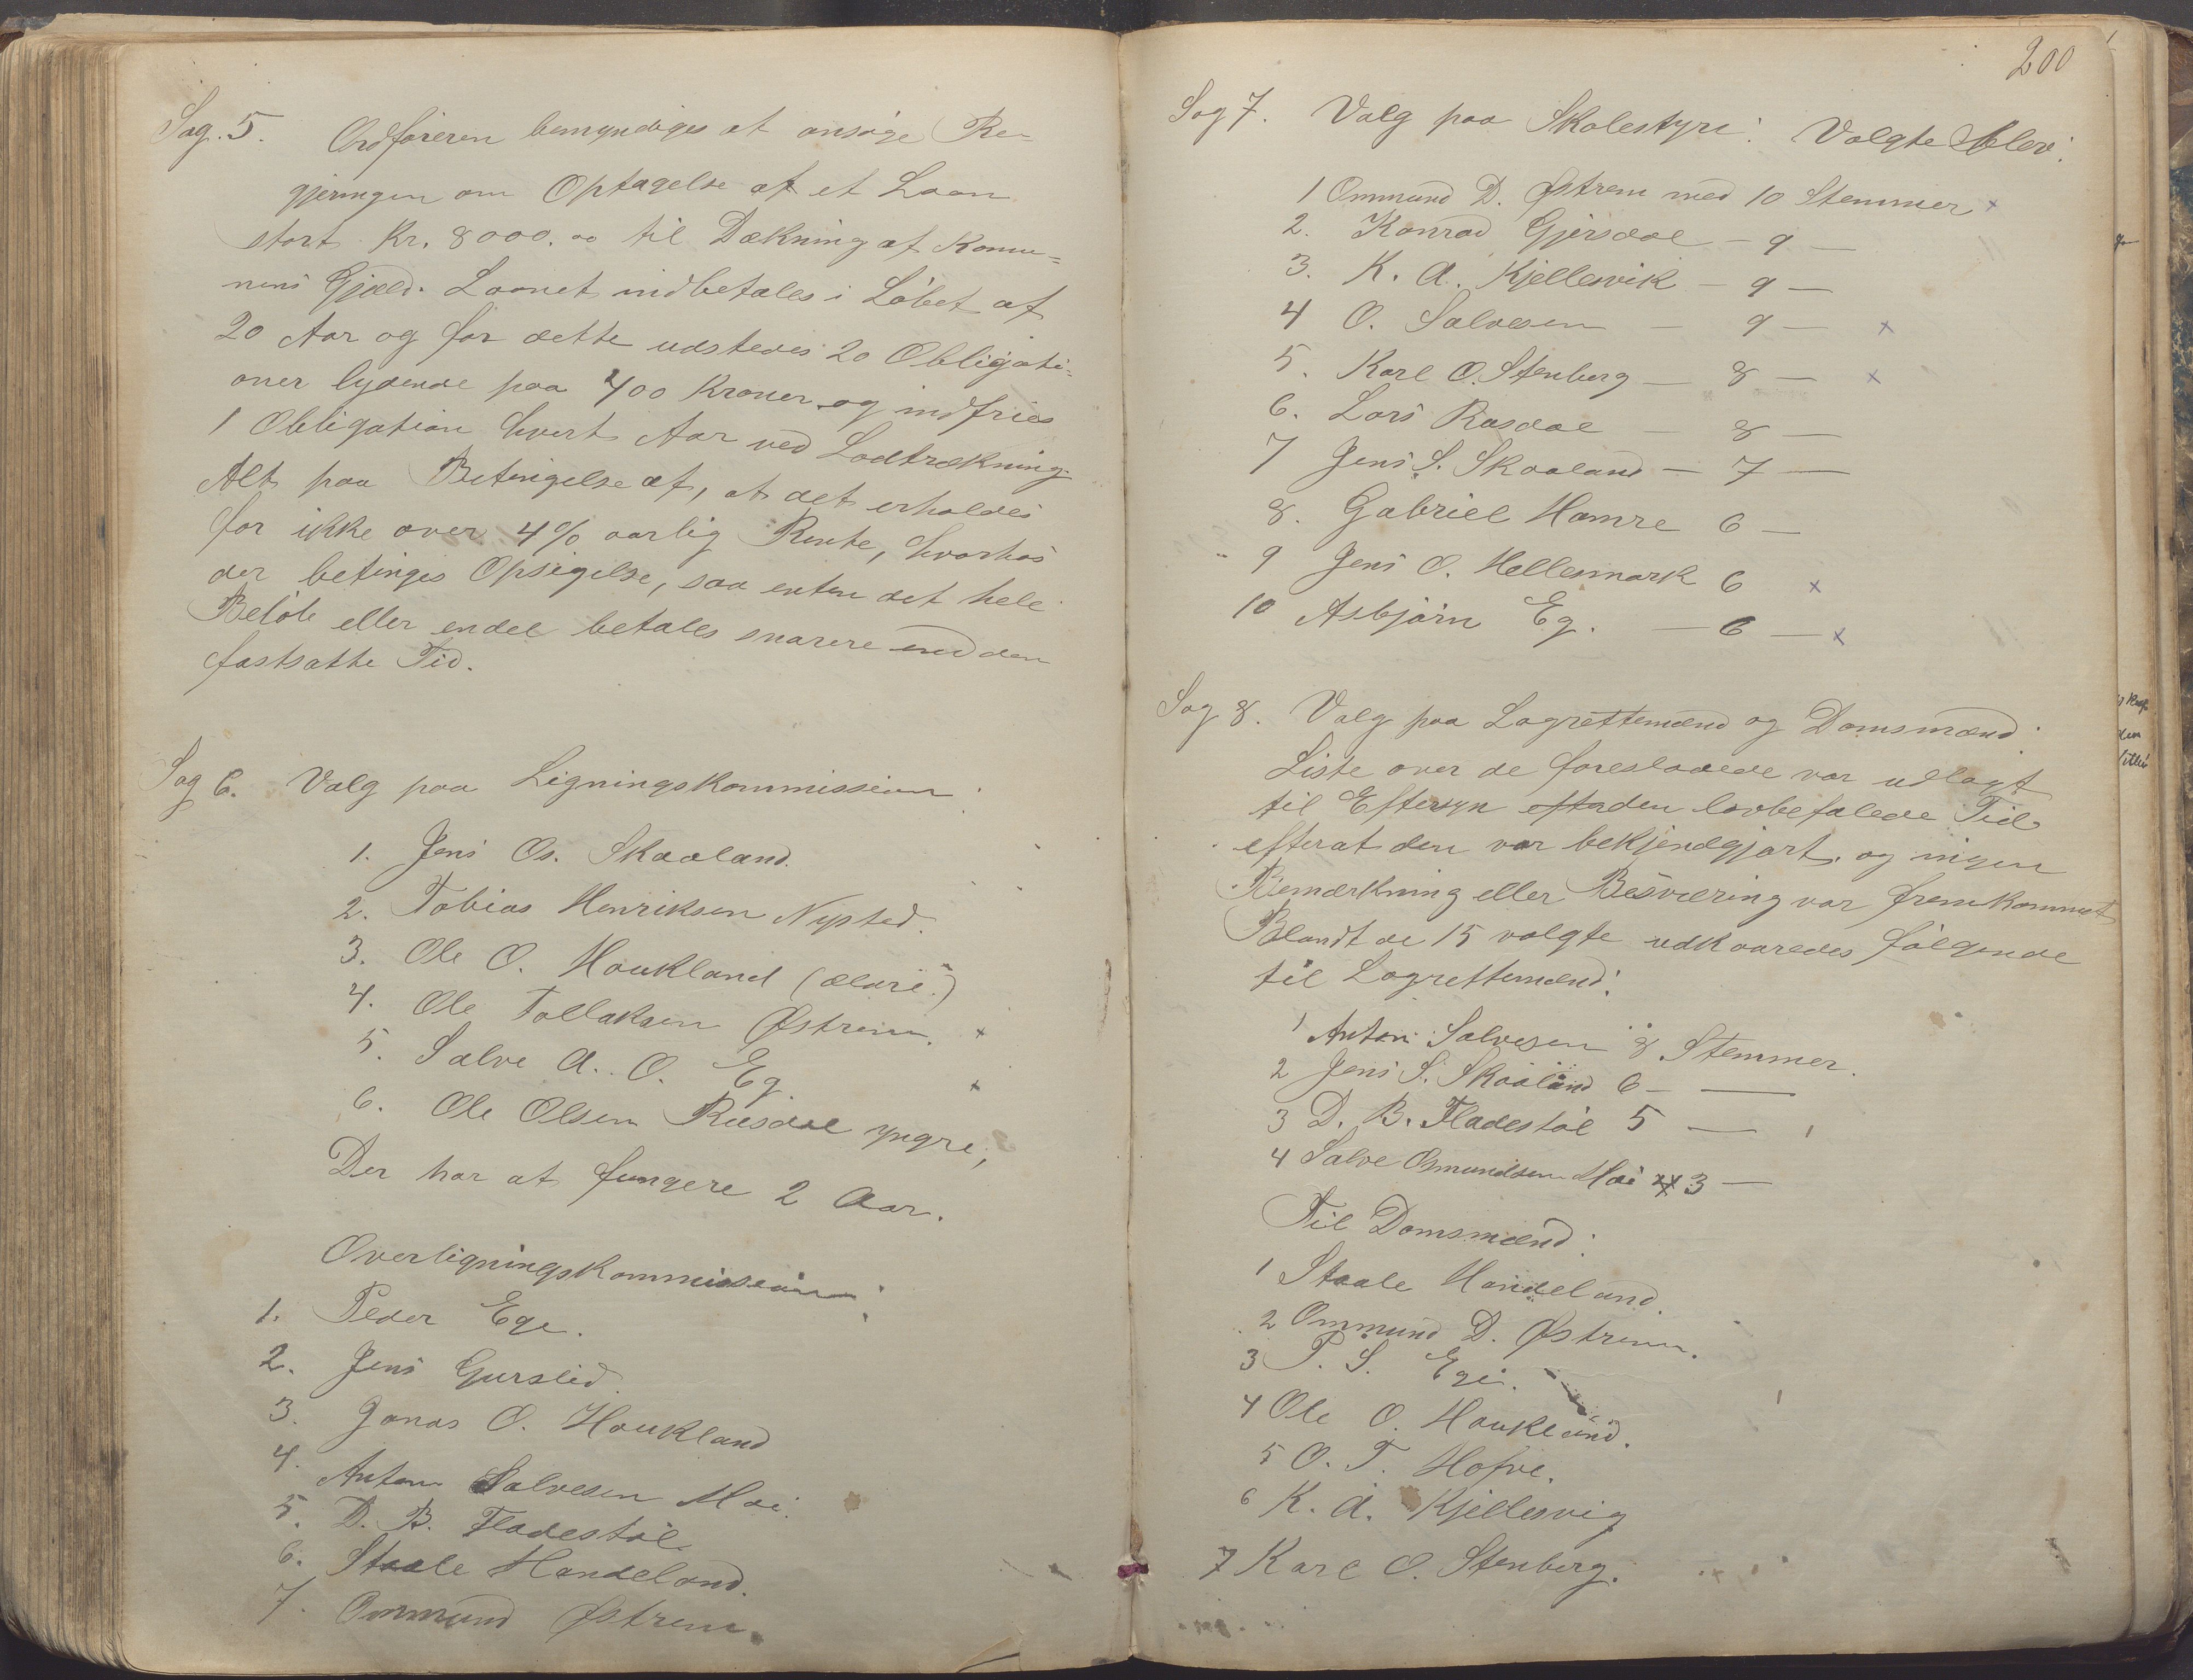 Sag. 5. Ordføreren bemyndiges at ansøge Re-
gjeringen om Optagelse af et Laan
stort Kr. 8000.00 til Dækning af Komu=
nens Gjæld. Laanet indbetales i Løbet af
20 Aar og for dette udstedes 20 Obligati=
oner lydende paa 400 Kroner og indfries
1 Obligation hvert Aar ved Lodtrækning.
Alt paa Betingelse af, at det erholdes
for ikke over 4% aarlig Rente, hvorhos
der betinges Opsigelse, saa enten det hele
Beløb eller endel betales snarere end den
fastsatte Tid.
Sag 6. Valg paa Ligningskommission:
1. Jens Os. Skaaland.
2. Tobias Henriksen Nysted.
3. Ole O. Haukland (ældre.)
4. Ole Tollaksen Østrem. x
5. Salve A. O. Eg x
6. Ole Olsen Rusdal yngre,
Der har at fungere 2 Aar.
Overligningskommission:
1. Peder Ege.
2. Jens Gyrslid.
3. Jonas O. Haukland
4. Anton Salvesen Moi.
5. D. B. Fladestøl
6. Staale Handeland.
7. Ommund Østrem.
200
Sag 7. Valg paa Skolestyre: Valgte blev:
1 Ommund D. Østrem med 10 Stemmer x
2. Konrad Gjersdal - 9 -
3. K. A. Kjellesvik - 9 -
4 O. Salvesen - 9 - x
5. Karl O. Stenberg - 8 - x
6. Lars Rusdal - 8 -
7 Jens S. Skaaland - 7 -
8. Gabriel Hamre 6 -
9 Jens O. Hellesmark 6 x
10 Asbjørn Eg. - 6 - x
Sag 8. Valg paa Lagrettemænd og Domsmænd.
Liste over de foreslaaede var udlagt
til Eftersyn den lovbefalede Tid
efterat den var bekjendgjort, og ingen
Bemærkning eller Besværing var fremkommet
Blandt de 15 valgte udkaaredes følgende
til Lagrettemænd:
1 Anton Salvesen 8 Stemmer.
2 Jens S. Skaaland 6 -
3 D. B. Fladestøl 5 -
4 Salve Osmundsen Moi 3 -
Til Domsmænd:
1 Staale Handeland.
2 Ommund D. Østrem.
3 P. S. Ege.
4 Ole O. Haukland.
5 O. T. Hofve.
6 K. A. Kjellesvig
7 Karl O. Stenberg.